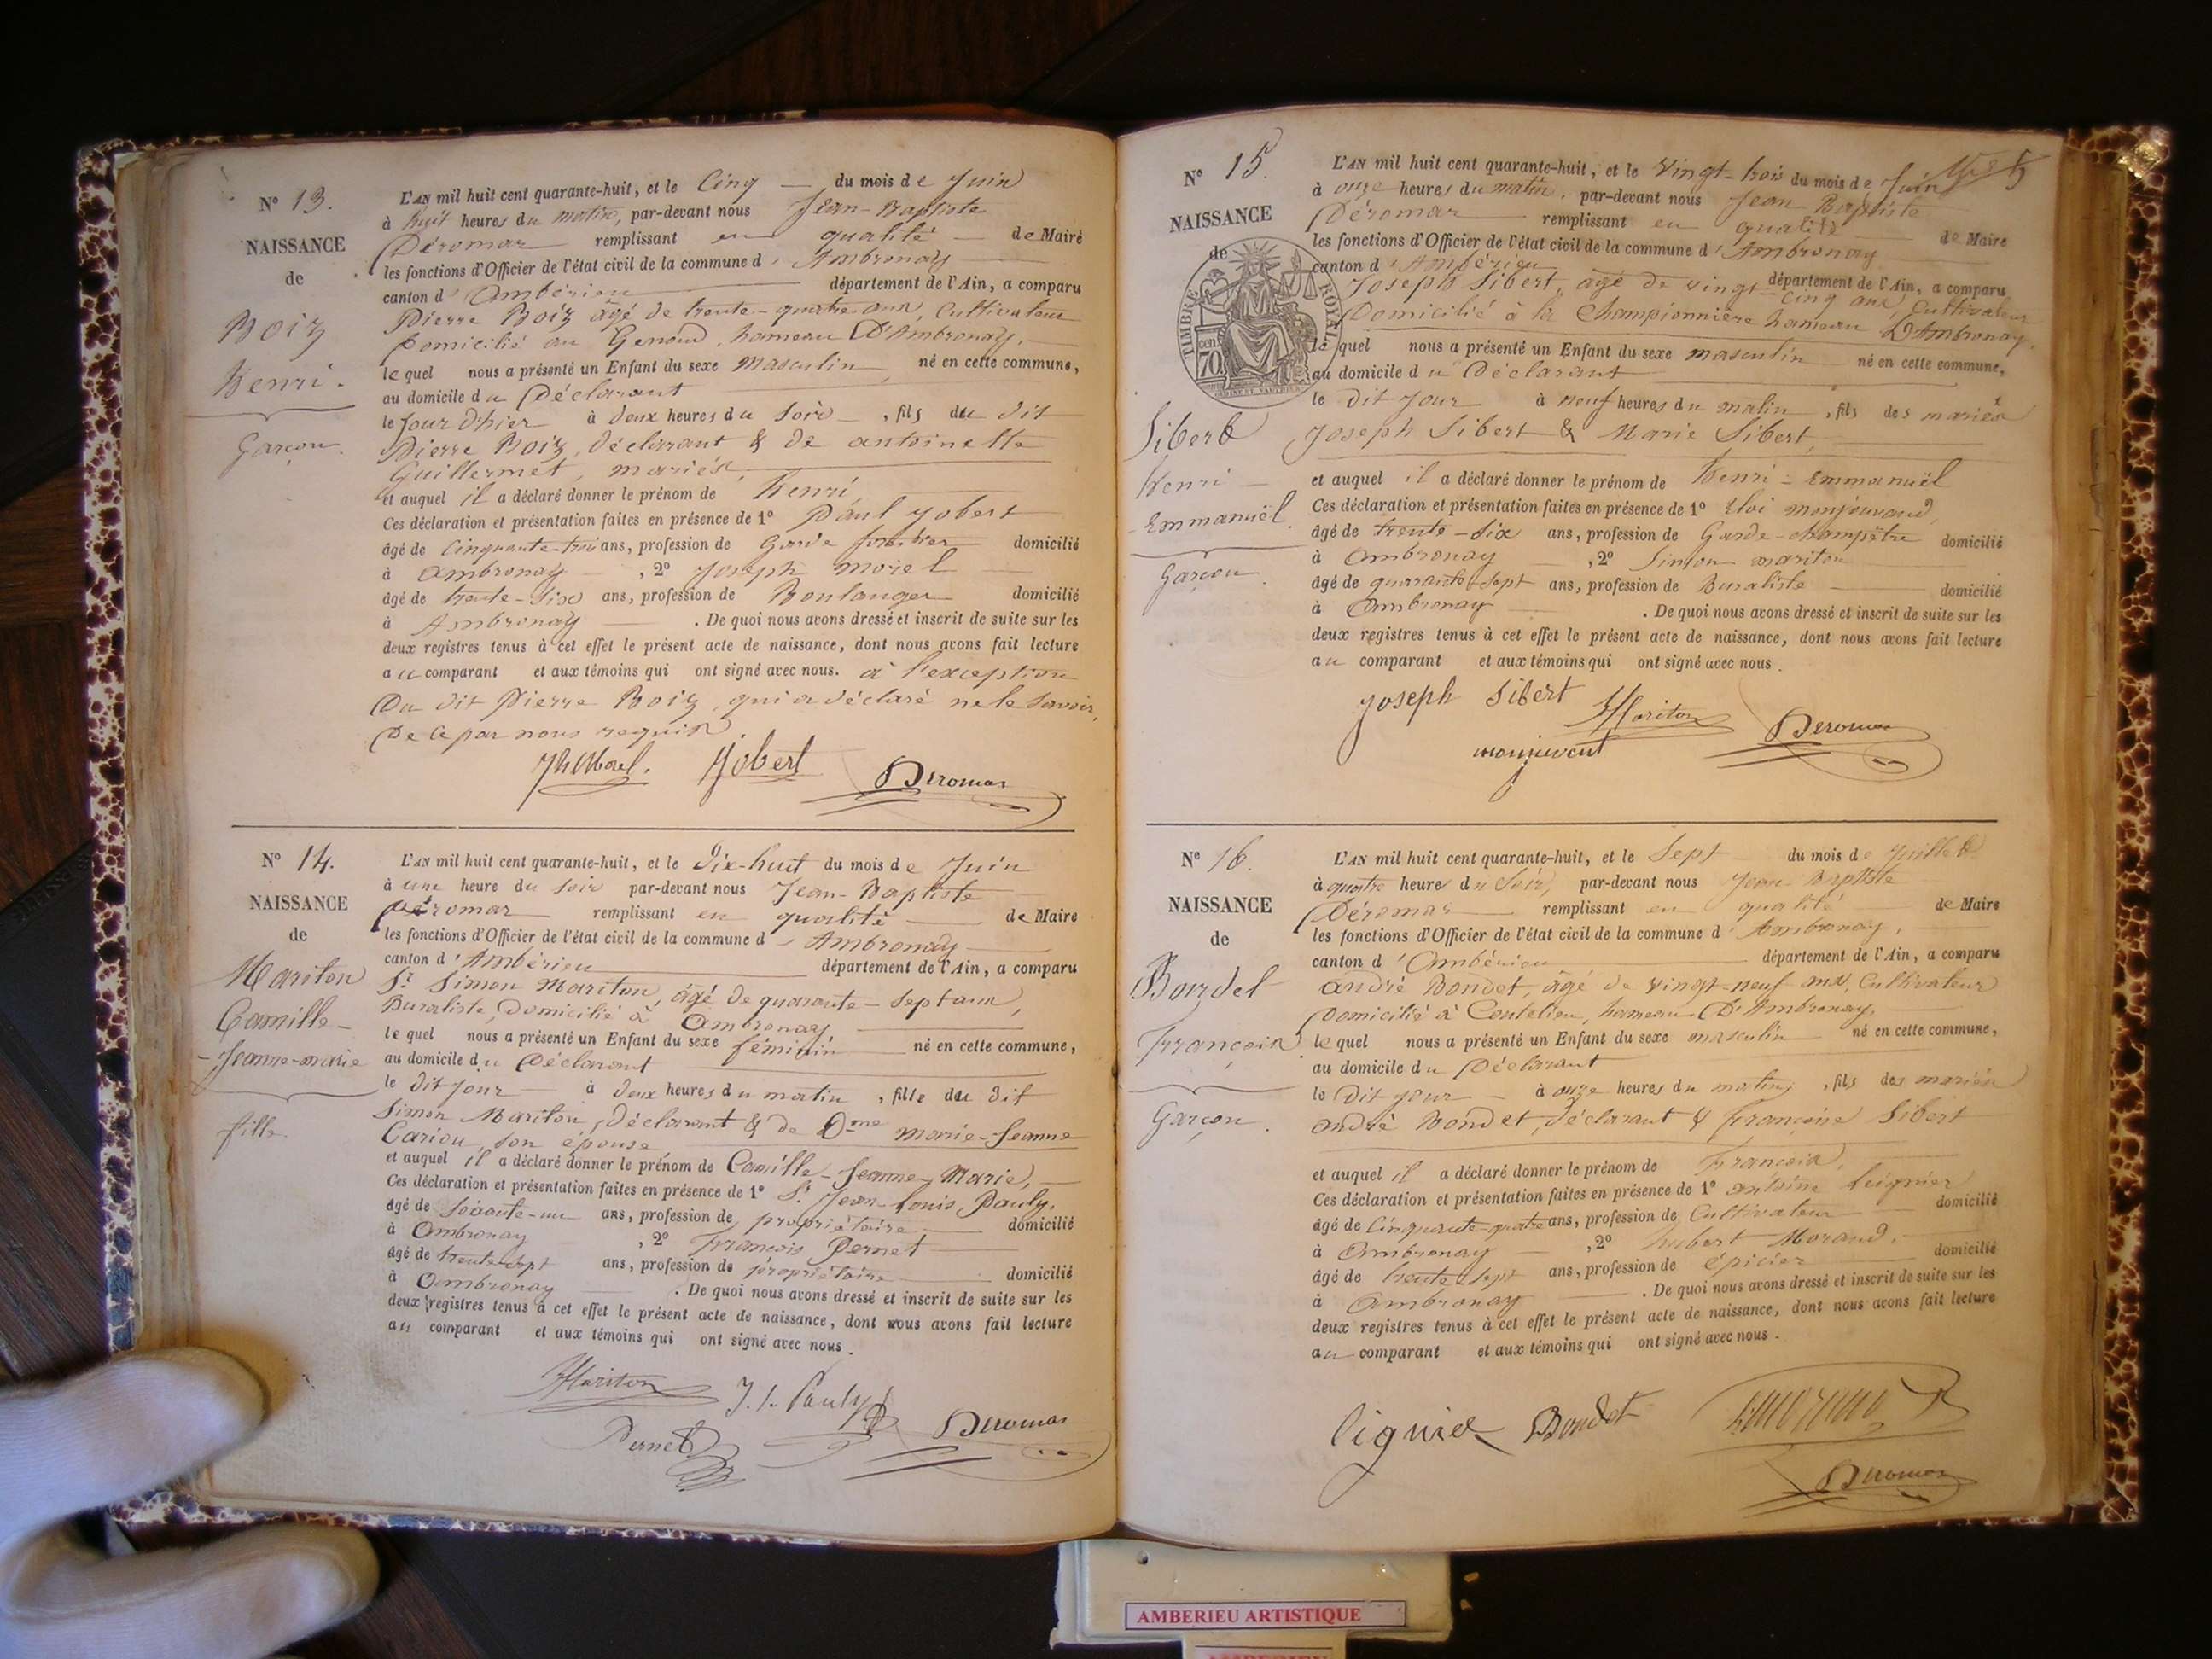 N° 13.
NAISSANCE
de
Boiz
Henri.
Garçon.
L'AN mil huit cent quarante-huit, et le Cinq du mois de Juin
à huit heures du matin, par-devant nous Jean-Baptiste
Déromas remplissant en qualité de Maire
les fonctions d'Officier de l'état civil de la commune d'Ambronay
canton d'Ambérieu département de l'Ain, a comparu
Pierre Boiz âgé de trente-quatre ans, Cultivateur
Domicilié au Genoud, hameau D'Ambronay,
le quel nous a présenté un Enfant du sexe masculin né en cette commune,
au domicile du Déclarant
le Jour d'hier à deux heures du Soir, fils du dit
Pierre Boiz, déclarant & de antoinette
Guillermet, mariés,
et auquel il a déclaré donner le prénom de Henri,
Ces déclaration et présentation faites en présence de 1° Paul Jobert
âgé de Cinquante-trois ans, profession de Garde forestier domicilié
à Ambronay, 2° Joseph Morel
âgé de trente-six ans, profession de Boulanger domicilié
à Ambronay. De quoi nous avons dressé et inscrit de suite sur les
deux registres tenus à cet effet le présent acte de naissance, dont nous avons fait lecture
au comparant et aux témoins qui ont signé avec nous. à l'exception
Du dit Pierre Boiz, qui a déclaré ne le savoir,
De ce par nous requis
Jh Morel. Jobert Deromas
N° 14.
NAISSANCE
de
Mariton
Camille-
-Jeanne-marie
fille.
L'AN mil huit cent quarante-huit, et le Dix-huit du mois de Juin
à une heure du soir par-devant nous Jean-Baptiste
Déromas remplissant en qualité de Maire
les fonctions d'Officier de l'état civil de la commune d'Ambronay
canton d'Ambérieu département de l'Ain, a comparu
Sr Simon Mariton, âgé de quarante-Sept ans,
Buraliste, Domicilié à Ambronay,
le quel nous a présenté un Enfant du sexe féminin né en cette commune,
au domicile du Déclarant
le dit jour à deux heures du matin, fille du dit
Simon Mariton, Déclarant & de Dme Marie-Jeanne
Cariou, son épouse
et auquel il a déclaré donner le prénom de Camille-Jeanne-Marie,
Ces déclaration et présentation faites en présence de 1° Sr Jean-Louis Pauly,
âgé de Soixante-un ans, profession de propriétaire domicilié
à Ambronay, 2° François Pernet
âgé de trente-sept ans, profession de propriétaire domicilié
à Ambronay. De quoi nous avons dressé et inscrit de suite sur les
deux registres tenus à cet effet le présent acte de naissance, dont nous avons fait lecture
au comparant et aux témoins qui ont signé avec nous.
Mariton J. L. Pauly
Pernet Deromas
N° 15.
NAISSANCE
de
TIMBRE ROYAL
cent.
70.
Sibert
Henri
-Emmanuël.
Garçon.
L'AN mil huit cent quarante-huit, et le Vingt-trois du mois de Juin
à onze heures du matin, par-devant nous Jean Baptiste
Déromas remplissant en qualité de Maire
les fonctions d'Officier de l'état civil de la commune d'Ambronay
canton d'Ambérieu département de l'Ain, a comparu
Joseph Sibert, âgé de vingt-cinq ans, Cultivateur
Domicilié à la Championnière hameau D'Ambronay,
le quel nous a présenté un Enfant du sexe masculin né en cette commune,
au domicile du Déclarant
le dit jour à neuf heures du matin, fils des mariés
Joseph Sibert & Marie Sibert,
et auquel il a déclaré donner le prénom de Henri-Emmanuël
Ces déclaration et présentation faites en présence de 1° Eloi Monjouvand,
âgé de trente-six ans, profession de Garde-champêtre domicilié
à Ambronay, 2° Simon Mariton
âgé de quarante-sept ans, profession de Buraliste domicilié
à Ambronay. De quoi nous avons dressé et inscrit de suite sur les
deux registres tenus à cet effet le présent acte de naissance, dont nous avons fait lecture
au comparant et aux témoins qui ont signé avec nous.
Joseph Sibert Mariton Deromas
monjuvent
N° 16.
NAISSANCE
de
Bondet
François
Garçon.
L'AN mil huit cent quarante-huit, et le Sept du mois de Juillet
à quatre heures du Soir, par-devant nous Jean Baptiste
Déromas remplissant en qualité de Maire
les fonctions d'Officier de l'état civil de la commune d'Ambronay,
canton d'Ambérieu département de l'Ain, a comparu
André Bondet, âgé de vingt-neuf ans, Cultivateur
Domicilié à Coutelieu, hameau D'Ambronay,
le quel nous a présenté un Enfant du sexe masculin né en cette commune,
au domicile du Déclarant
le Dit jour à onze heures du matin, fils des mariés
André Bondet, déclarant & Françoise Sibert
et auquel il a déclaré donner le prénom de François,
Ces déclaration et présentation faites en présence de 1° Antoine Leignier
âgé de Cinquante-quatre ans, profession de Cultivateur domicilié
à Ambronay, 2° hubert Morand.
âgé de trente-sept ans, profession de épicier domicilié
à Ambronay. De quoi nous avons dressé et inscrit de suite sur les
deux registres tenus à cet effet le présent acte de naissance, dont nous avons fait lecture
au comparant et aux témoins qui ont signé avec nous.
lignier Bondet
Deromas
AMBERIEU ARTISTIQUE